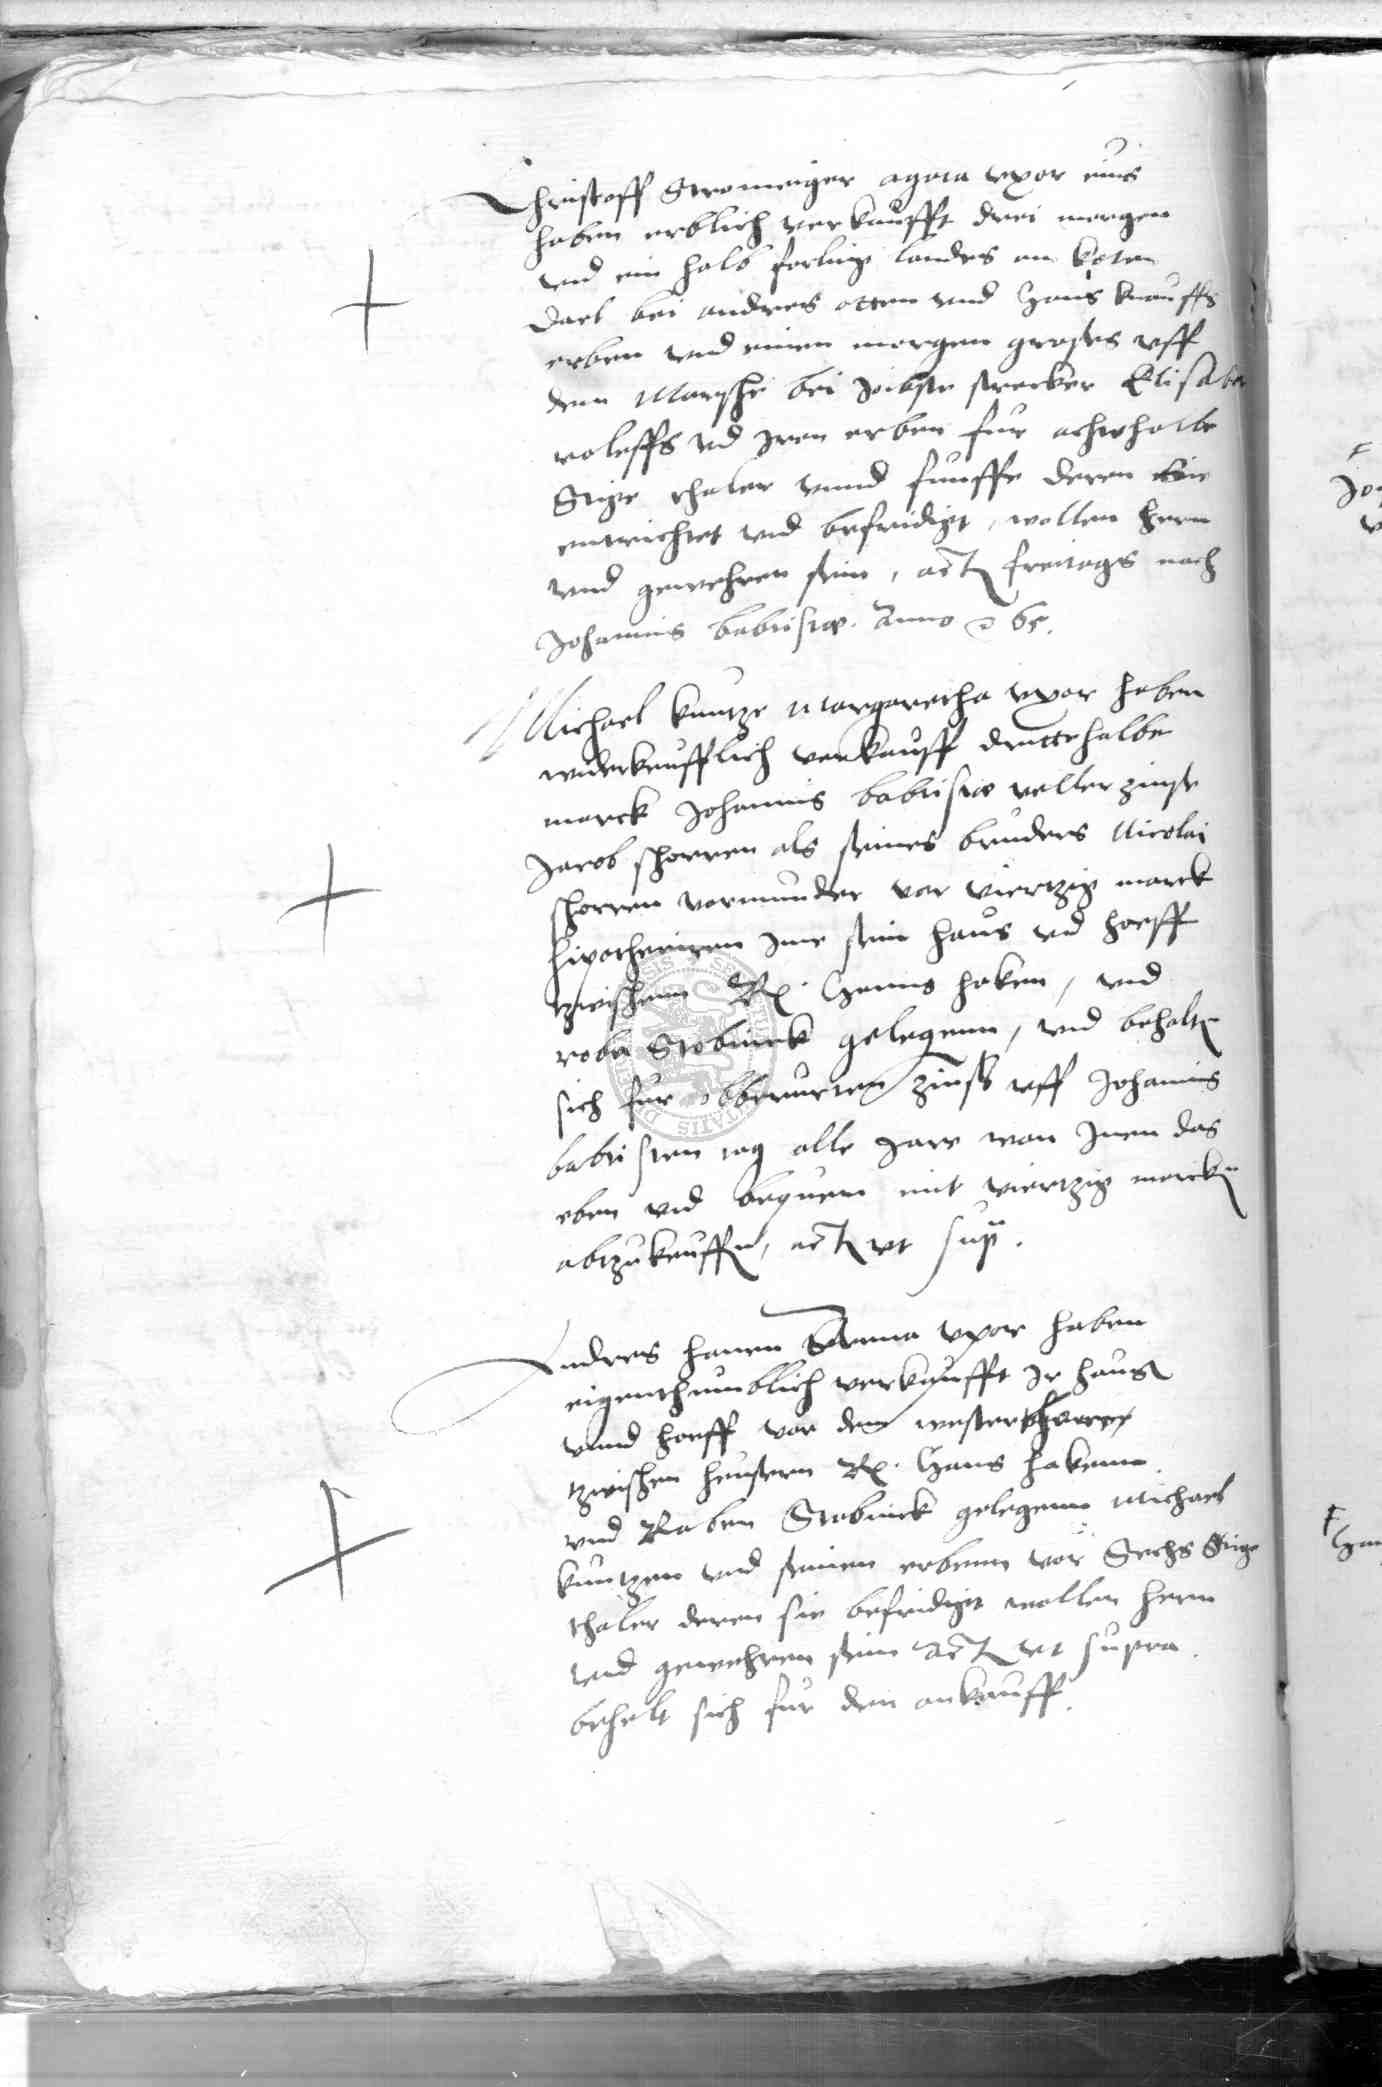 Christoff Stromeiger agata vxor eius
haben erblich verkaufft drei morgen
vnd ein halb forling landes am koten
dael bei andres otten vnd Hans knauffs
erben vnd einen morgen groses vff
dem Marsche bei Jobste strecker Elisabet
roleffs vnd Iren erben fur achtehalbe
Stige thaler vnnd funffe deren sie
entrichtet vnd befridigt, wollen hern
vnd gewehren sein, act freitags nach
Johannis babtiste. Anno 65.
Michael kuntze Margaretha vxor haben
widerkeufflich verkauff drittehalbe
marck Johannis babtiste veller zinse
Jacob schorren als seines bruders Nicolai
schorren vormunder vor viertzig marck
hipotheciren Ime sein haus vnd hoeff
tzwischenn Hanns haken, vnd
Stobinck gelegenn, vnd behalt
sich fur obberurten zinss vff Johannis
babtisten tag alle Jare wan Inen das
eben vnd bequem mit viertzig marck
abtzukeuffen, act vt sup.
Andres hanen Anna vxor haben
eigenthumblich verkaufft Ir haus
vnnd hoeff vor dem westerthore
tzwischen heusern Hans hakenn
vnd Raben Stobinck gelegenn Michael
kuntzen vnd seinen erbenn vor Sechs Stige
thaler deren sie befridigt wollen hern
vnd gewehren sein act vt supra.
behelt sich fur den ankauff.